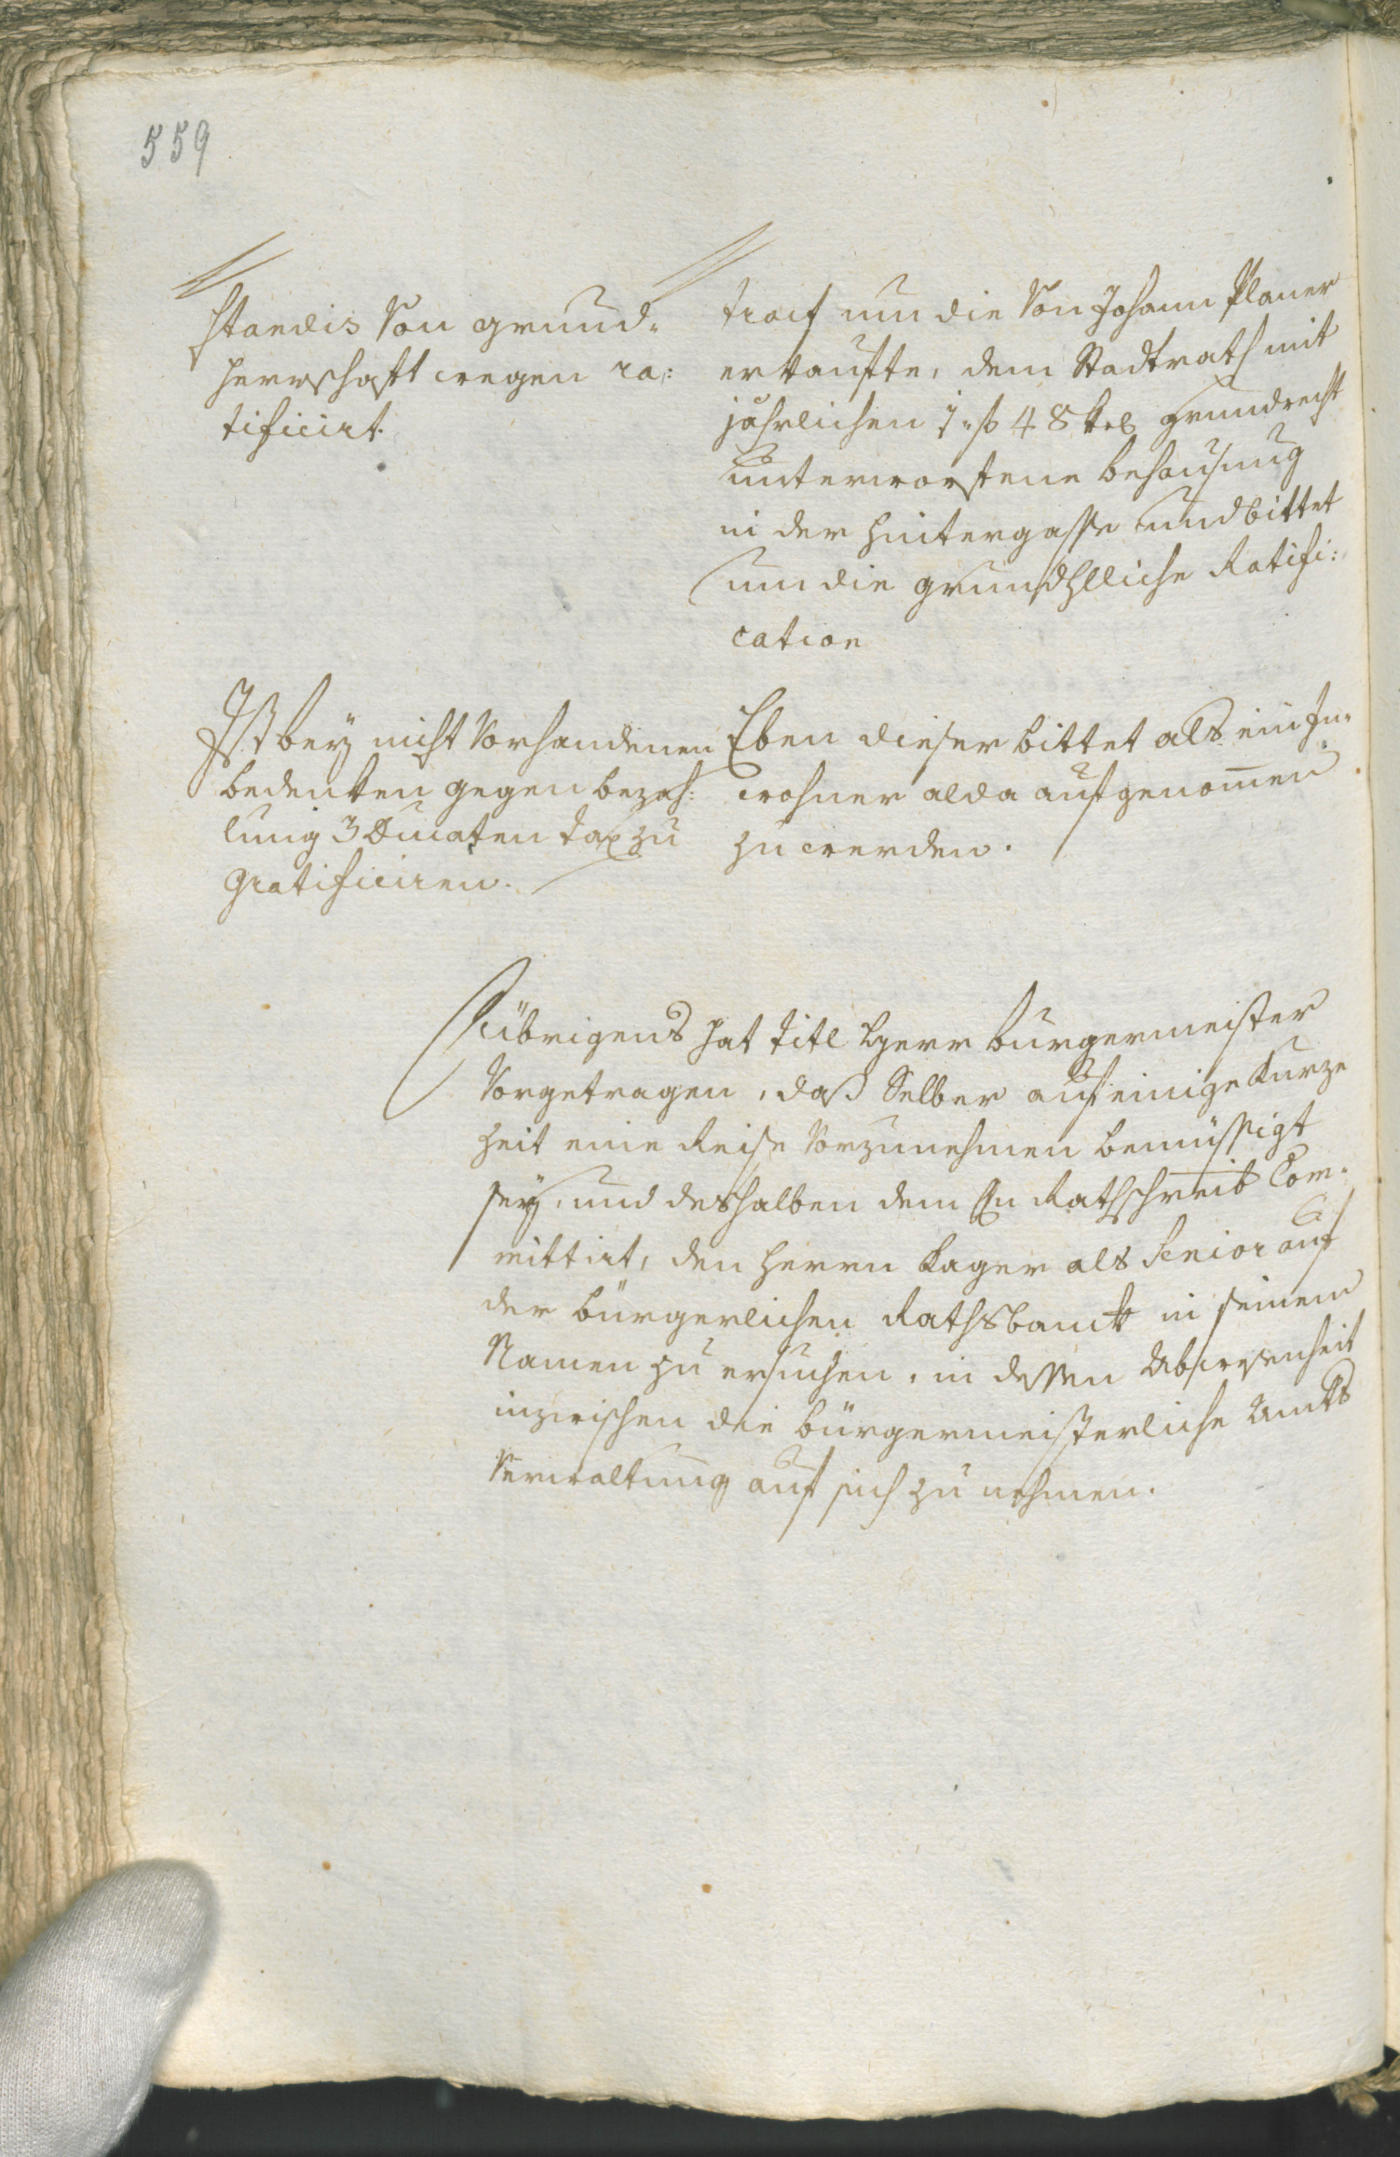 559
standis von grund-
herrschaft wegen ra:
tificirt.
tract um die von Johann Planer
erkaufte, dem Stadtrath mit
jährlichen 1 ß 48 kr grundrecht
unterworfene behausung
in der hintergasse und bittet
um die grundhlliche Ratifi:
cation
Ist bey nicht vorhandenen
bedenken gegen bezah:
lung 3 Ducaten tax zu
gratificiren.
Eben dieser bittet als ein In-
wohner alda aufgenomen
zu werden.
übrigens hat titl Herr burgermeister
vorgetragen, daß Selber auf einige kurze
Zeit eine Reise vorzunehmen bemüssigt
sey, und deshalben dem Hn Rathschreib Com-
mittirt, den Herrn Kager als Senior auf
der bürgerlichen Rathsbanck in seinem
Namen zu ersuchen, in dessen Abwesenheit
inzwischen die bürgermeisterliche Amts
Verwaltung auf sich zu nehmen.